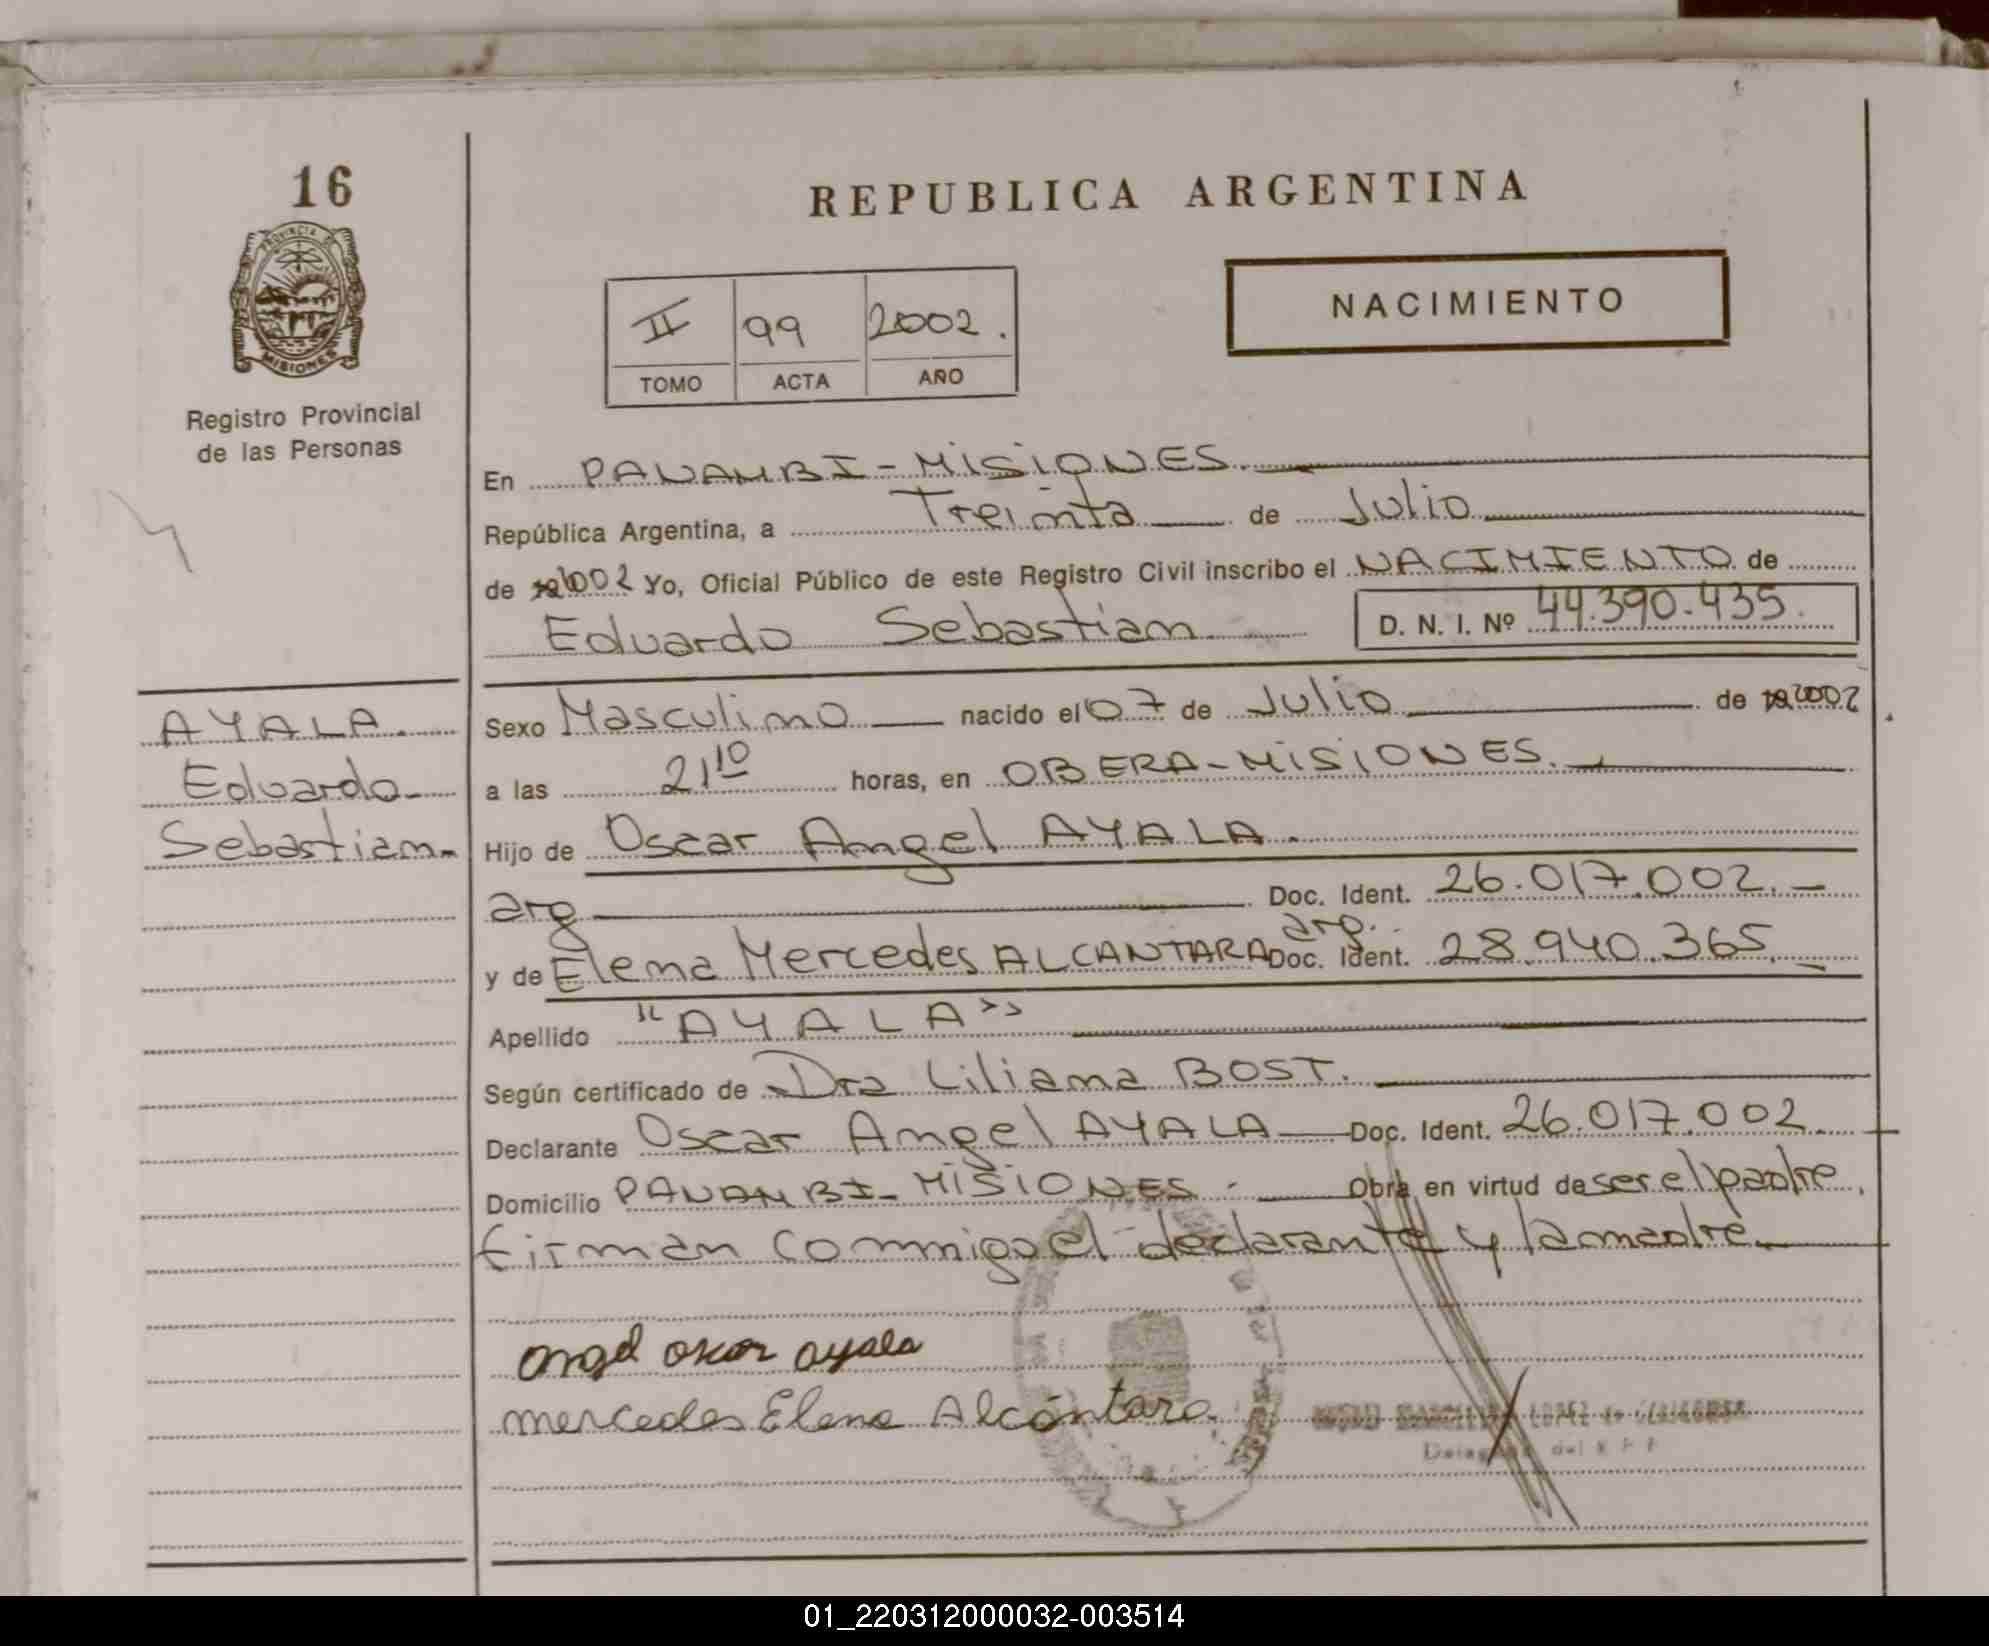 16
REPUBLICA ARGENTINA
PROVINCIA DE
MISIONES
II 99 2002.
TOMO ACTA AÑO
NACIMIENTO
Registro Provincial
de las Personas
En PANAMBI - MISIONES.
República Argentina, a Treinta de Julio
de 2002 Yo, Oficial Público de este Registro Civil inscribo el NACIMIENTO de
Eduardo Sebastian D. N. I. Nº 44.390.435.
AYALA.
Eduardo
Sebastian.
Sexo Masculino nacido el 07 de Julio de 2002
a las 21 10 horas, en OBERA - MISIONES.
Hijo de Oscar Angel AYALA.
arg Doc. Ident. 26.017.002.
arg.
y de Elena Mercedes ALCANTARA Doc. Ident. 28.940.365.
Apellido "AYALA"
Según certificado de Dra Liliana BOST.
Declarante Oscar Angel AYALA Doc. Ident. 26.017.002.
Domicilio PANAMBI - MISIONES. Obra en virtud de ser el padre,
firman conmigo el declarante y la madre.
angel oscar ayala
mercedes Elena Alcántara.
LOPEZ de
del
01_220312000032-003514